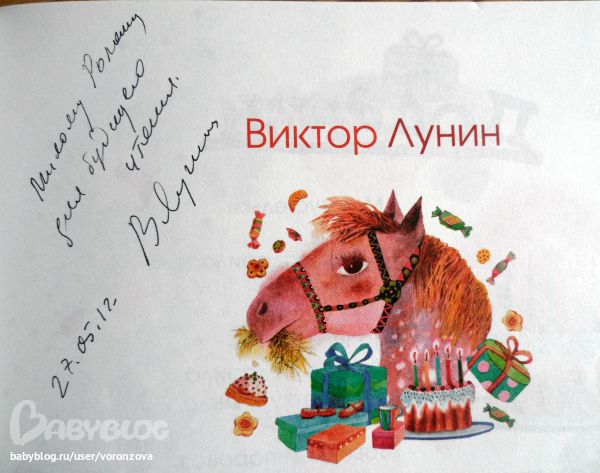 Милому Роману
для будущего
чтения.
В Лунин
27.05.12.
Виктор Лунин
BABYBLOG
babyblog.ru/user/voronzova